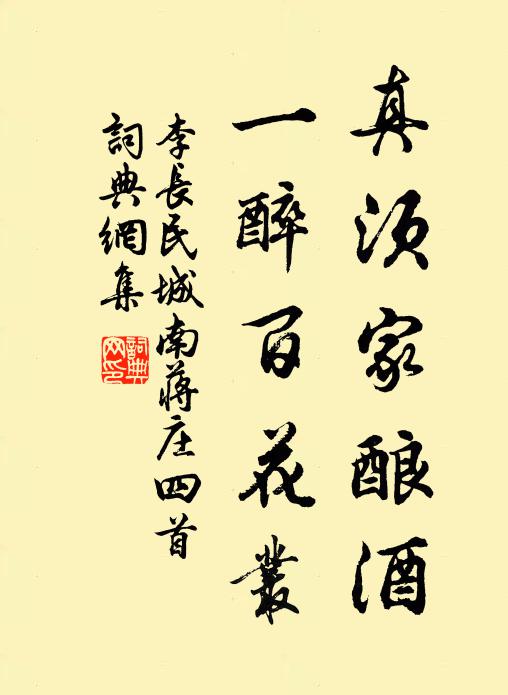 真须家酿酒
一醉百花叢
李長民城南蔣庄四首
詞典網集
詞典網印